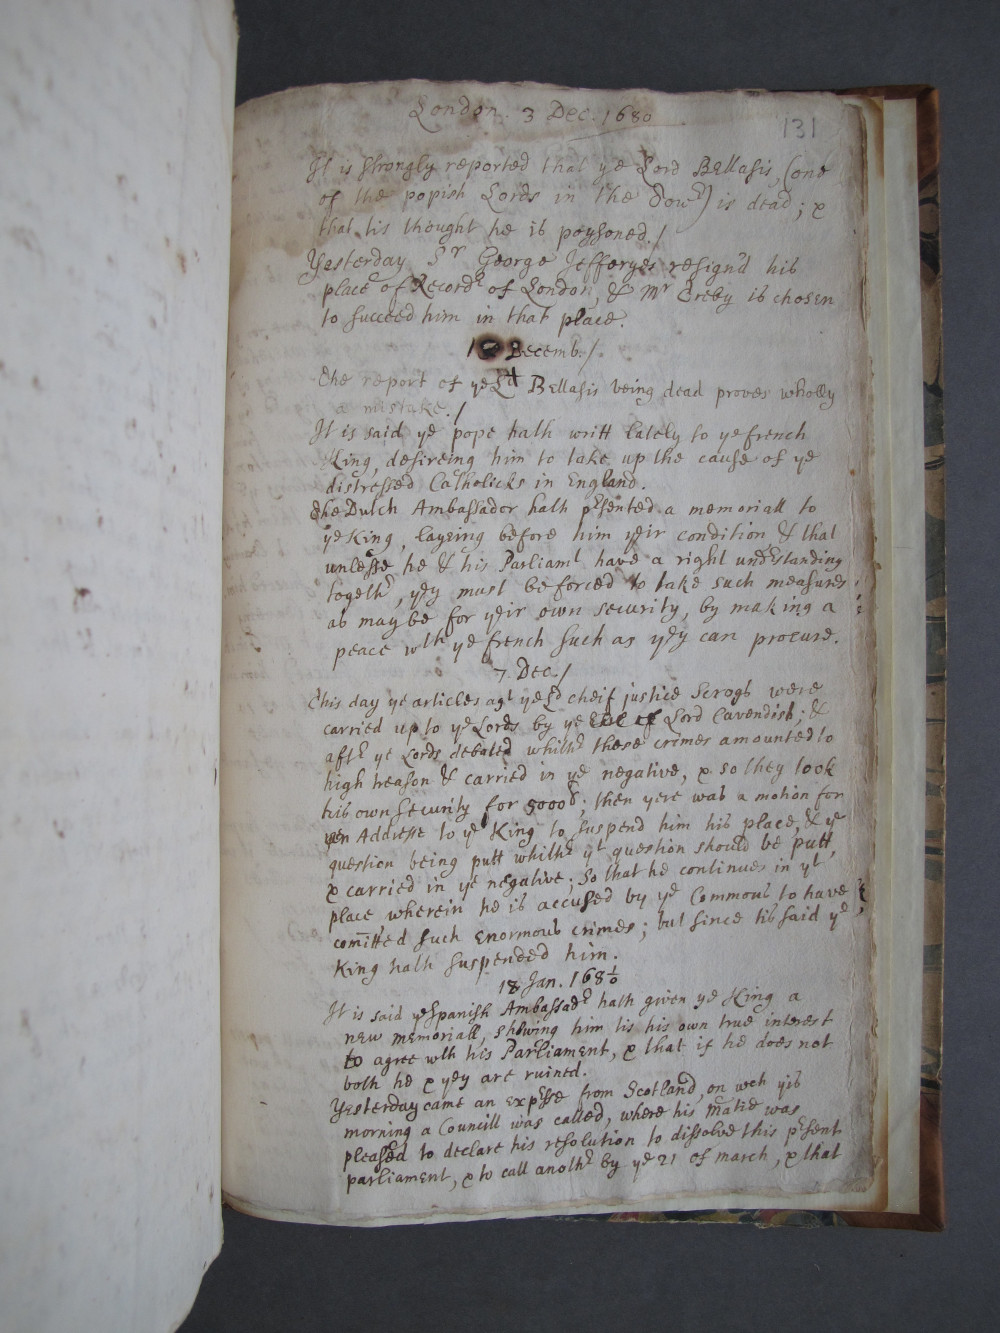 London. 3 Dec. 1680
131
It is strongly reported that ye Lord Bellasis, (one
of the popish Lords in the Towr) is dead; &
that tis thought he is poysoned./
Yesterday Sr George Jefferyes resign'd his
place of Recordr of London, & Mr Treby is chosen
to succeed him in that place.
Decemb./
The report of ye Ld Bellasis being dead proves wholly
a mistake./
It is said ye pope hath writt lately to ye french
King, desireing him to take up the cause of ye
distressed Catholicks in England.
The Dutch Ambassador hath prsented a memoriall to
ye King, layeing before him yeir condition & that
unlesse he & his Parliamt have a right undrstanding
togethr, yey must be forced to take such measures
as may be for yeir own security, by making a
peace wth ye french such as yey can procure.
7. Dec./
This day ye articles agt ye Ld cheif justice Scrogs were
carried up to ye Lords by ye Lord Cavendish; &
aftr ye Lords debated whithr these crimes amounted to
high treason & carried in ye negative, & so they took
his own security for 5000l; then yere was a motion for
an Addresse to ye King to suspend him his place, & ye
question being putt whithr yt question should be putt,
& carried in ye negative; so that he continues in yt
place wherein he is accused by ye Commons to have
comitted such enormous crimes; but since tis said ye
King hath suspended him.
18 Jan. 168 1/0
It is said ye Spanish Ambassadr hath given ye King a
new memoriall, shewing him tis his own true interest
to agree wth his Parliament, & that if he does not
both he & yey are ruined.
Yesterday came an exprsse from Scotland, on wch yis
morning a Councill was called, where his Matie was
pleased to declare his resolution to dissolve this prsent
parliament, & to call anothr by ye 21 of march, & that